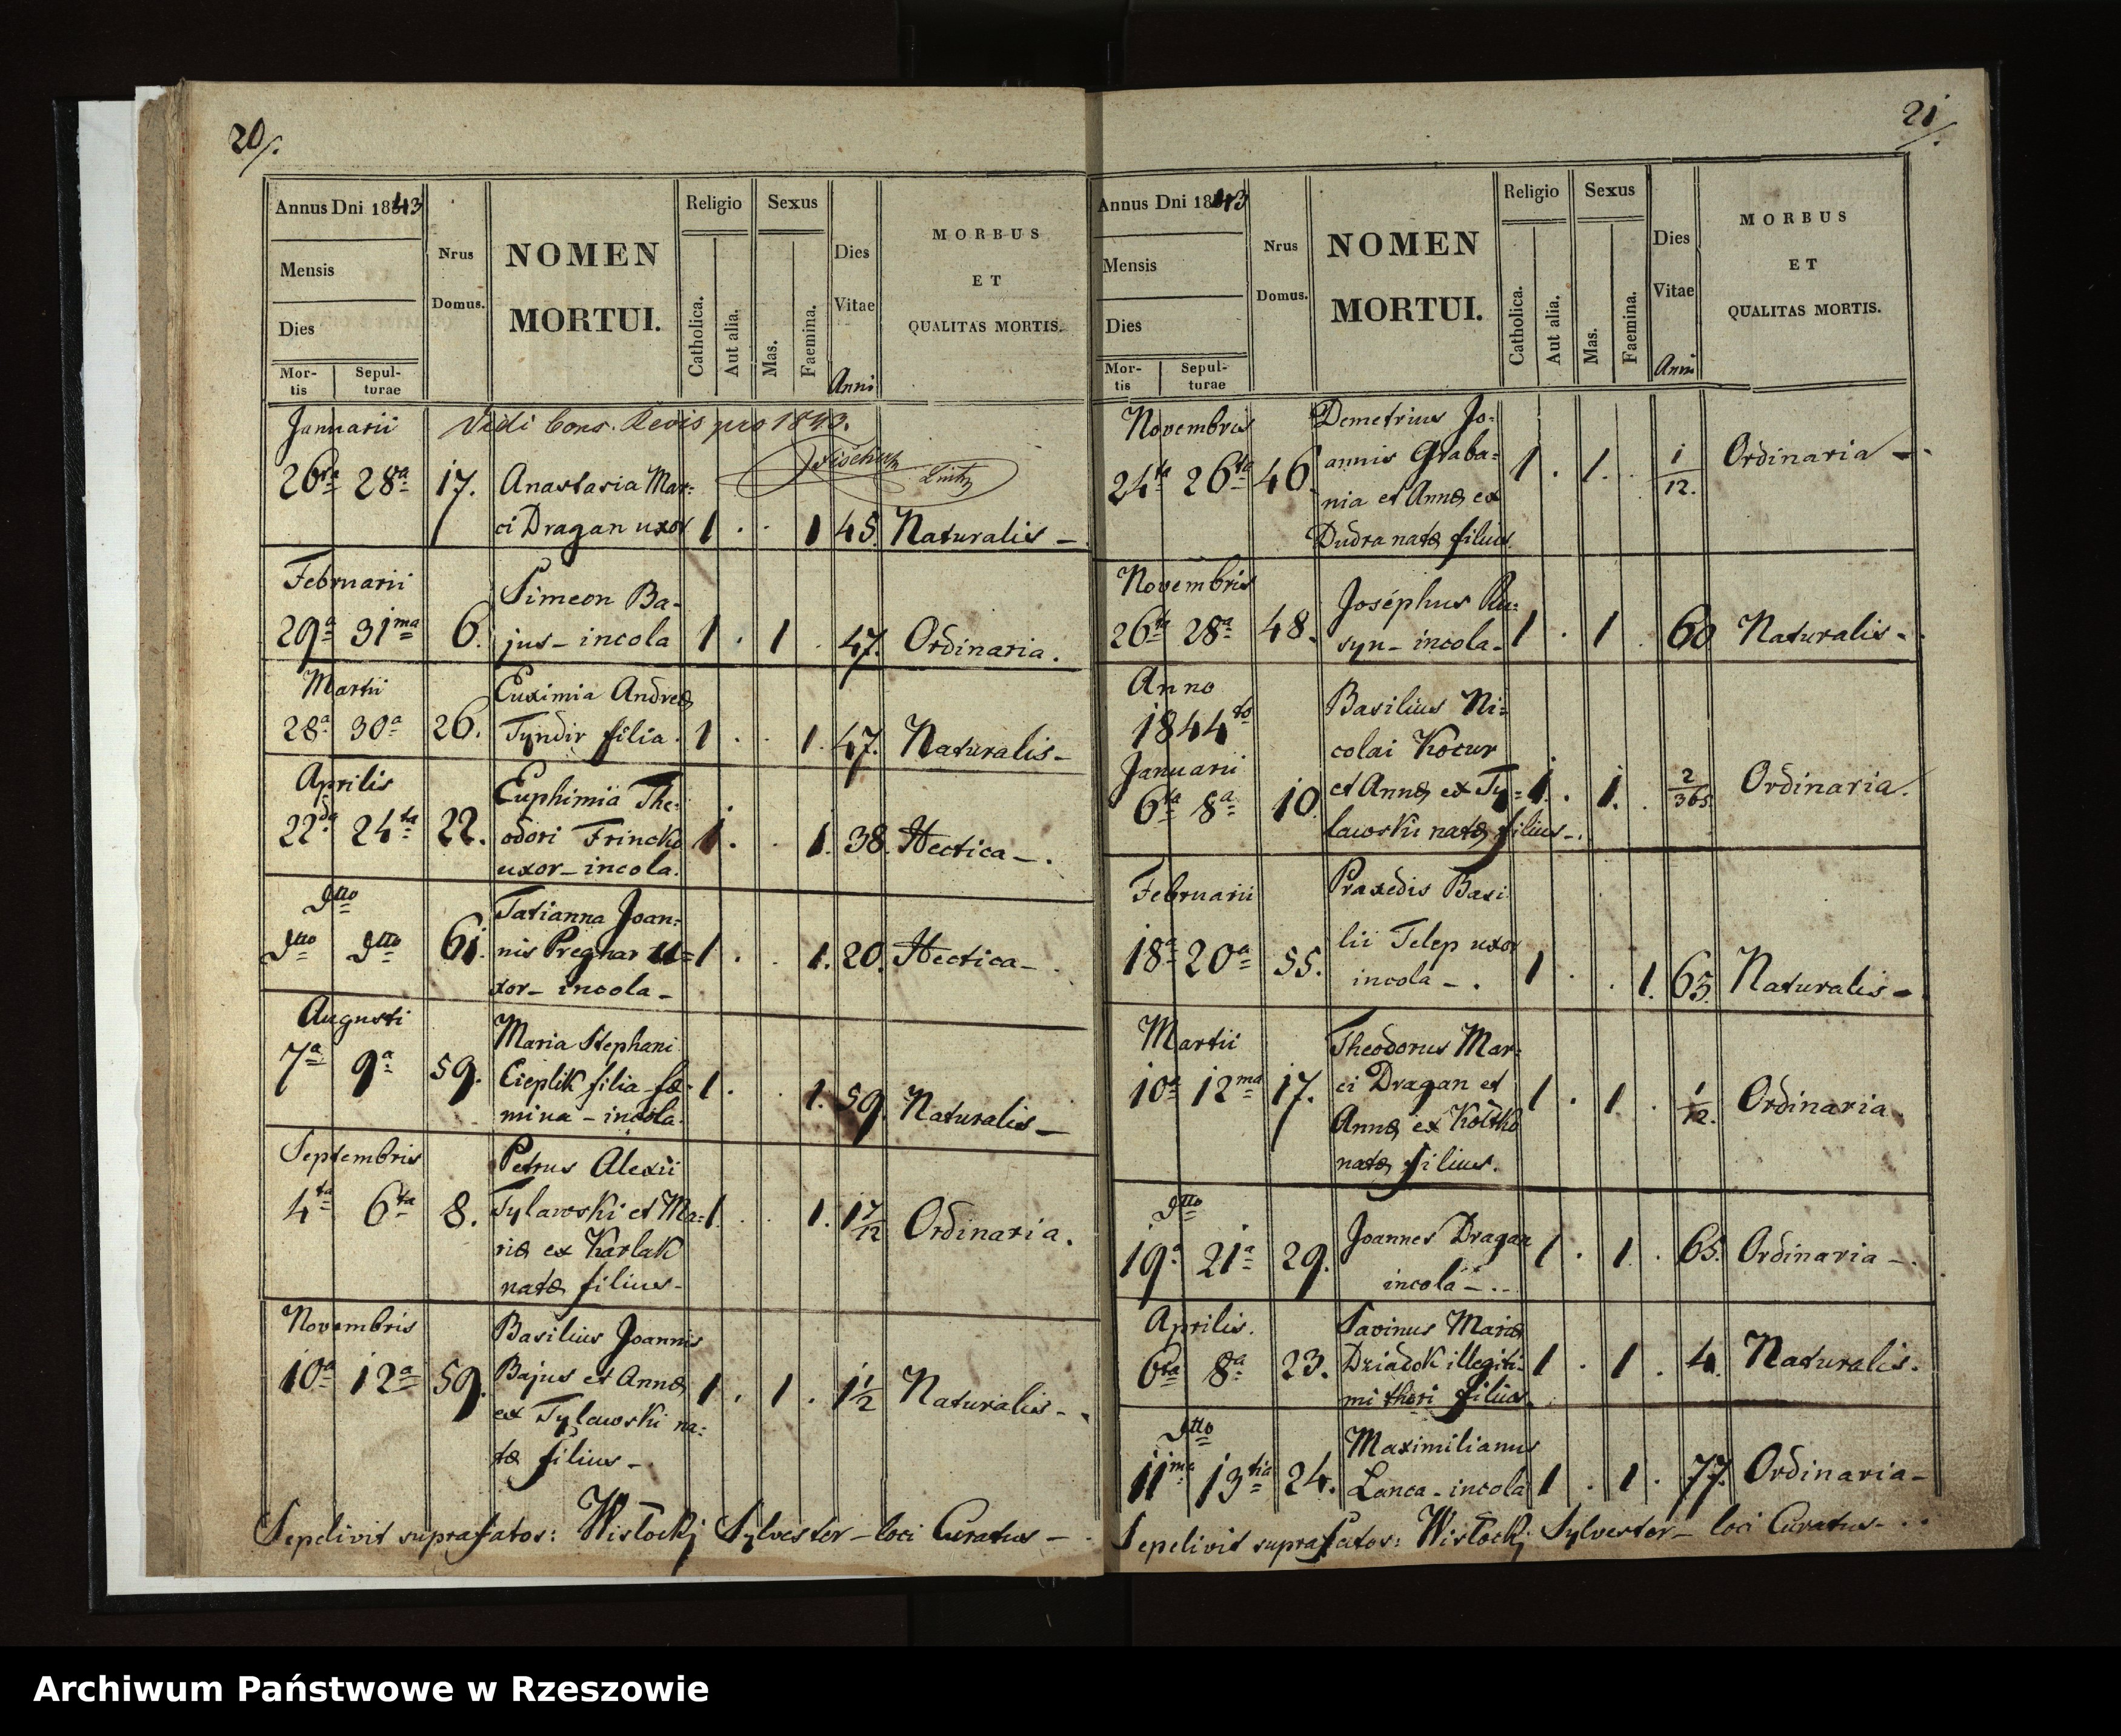 20/.
Annus Dni 1843
Mensis
Dies
Mor-
tis
Sepul-
turae
Nrus
Domus.
NOMEN
MORTUI.
Religio
Catholica.
Aut alia.
Sexus
Mas.
Faemina.
Dies
Vitae
Anni
MORBUS
ET
QUALITAS MORTIS.
Januarii Vidi Cons. Revis pro 1843.
26ta 28a 17. Anastasia Mar-
ci Dragan uxor 1 . . 1 45. Naturalis –
Februarii Simeon Ba-
29a 31ma 6. jus – incola 1 . 1 . 47. Ordinaria.
Martii Euximia Andreæ
28a 30a 26. Tyndir filia. 1 . . 1. 47. Naturalis –
Aprilis Euphimia The-
22da 24ta 22. odori Frincko 1. . 1. 38. Hectica – .
uxor – incola.
Dtto Tatianna Joan-
Dtto Dtto 61. nis Pregnar u= 1 . . 1. 20. Hectica –
xor – incola –
Augusti Maria Stephani
7a 9a 59. Cieplik filia fæ- 1 . . 1. 59. Naturalis –
mina – incola.
Septembris Petrus Alexii
4ta 6ta 8. Tylawski et Ma- 1. . 1. 17/12 Ordinaria.
riæ ex Karlak
natæ filius –
Novembris Basilius Joannis
10a 12a 59. Bajus et Annæ 1 . 1 . 1 1/2 Naturalis –
ex Tylawski na-
tæ filius –
Sepelivit suprafatos: Wisłockj Sylvester – loci Curatus –
21/.
Annus Dni 1843
Mensis
Dies
Mor-
tis
Sepul-
turae
Nrus
Domus.
NOMEN
MORTUI.
Religio
Catholica.
Aut alia.
Sexus
Mas.
Faemina.
Dies
Vitae
Anni
MORBUS
ET
QUALITAS MORTIS.
Novembris Demetrius Jo-
24ta 26ta 46. annis Graba- 1 . 1. . 1/12. Ordinaria –
nia et Annæ ex
Dudra natæ filius.
Novembris Josephus Ru-
26ta 28a 48. syn – incola – 1 . 1 . 60 Naturalis –
Anno Basilius Ni-
1844to colai Kocur
Januarii
6ta 8a 10. et Annæ ex Ty- 1. . 1. . 2/365 Ordinaria.
lawski natæ filius – .
Februarii Praxedis Basi
18a 20a 55. lii Telep uxor
incola – . 1 . . 1. 63. Naturalis –
Martii Theodorus Mar-
10a 12ma 17. ci Dragan et 1 . 1 . 1/12. Ordinaria.
Annæ ex Kostko
natæ filius.
Dtto
19a 21a 29. Joannes Dragan 1 . 1 . 65. Ordinaria – .
incola – . .
Aprilis. Savinus Mariæ
6ta 8a 23. Dziadok illegiti- 1 . 1 . 4. Naturalis.
mi thori filius.
Dtto Maximilianus
11ma 13tia 24. Lanca – incola 1 . 1 . 77. Ordinaria –
Sepelivit suprafatos: Wisłockj Sylvester – loci Curatus –
Archiwum Państwowe w Rzeszowie